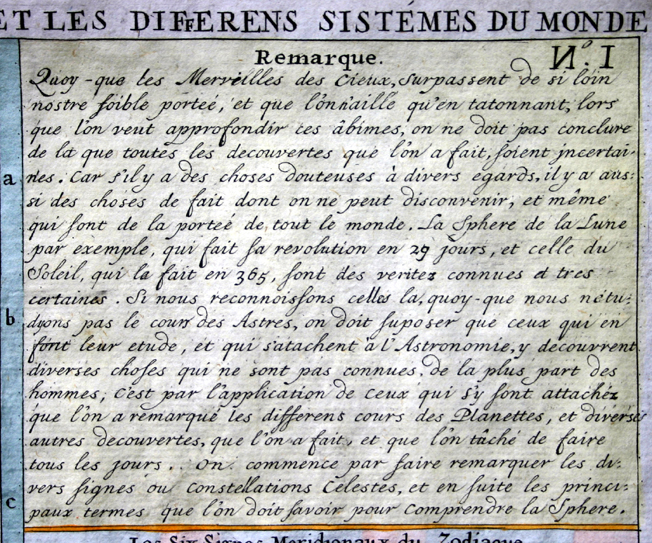 ET LES DIFFERENS SISTÉMES DU MONDE
Remarque. N.º I
Quoy-que les Merveilles des Cieux, surpassent de si loin
nostre foible porteé, et que l'on n'aille qu'en tatonnant, lors
que l'on veut approfondir ces âbimes, on ne doit pas conclure
de la que toutes les decouvertes que l'on a fait, soient jncertai-
a
nes. Car s'il y a des choses douteuses à divers egards, il y a aus:
si des choses de fait dont on ne peut disconvenir, et même
qui sont de la porteé de tout le monde. La Sphere de la Lune
par exemple, qui fait sa revolution en 29 jours, et celle du
Soleil, qui la fait en 365, sont des veritez connues et tres
certaines. Si nous reconnoissons celles la, quoy-que nous n'étu:
b
dyons pas le cours des Astres, on doit suposer que ceux qui en
font leur etude, et qui s'atachent à l'Astronomie, y decouvrent
diverses choses qui ne sont pas connues, de la plus part des
hommes; c'est par l'application de ceux qui s'y sont attachéz
que l'on a remarqué les differens cours des Planettes, et diverses
autres decouvertes, que l'on a fait, et que l'on tâché de faire
tous les jours.. On commence par faire remarquer les di-
vers signes ou Constellations Celestes, et en suite les princi-
c
paux termes que l'on doit savoir pour comprendre la Sphere.
Les Six Signes Meridionaux du Zodiaque